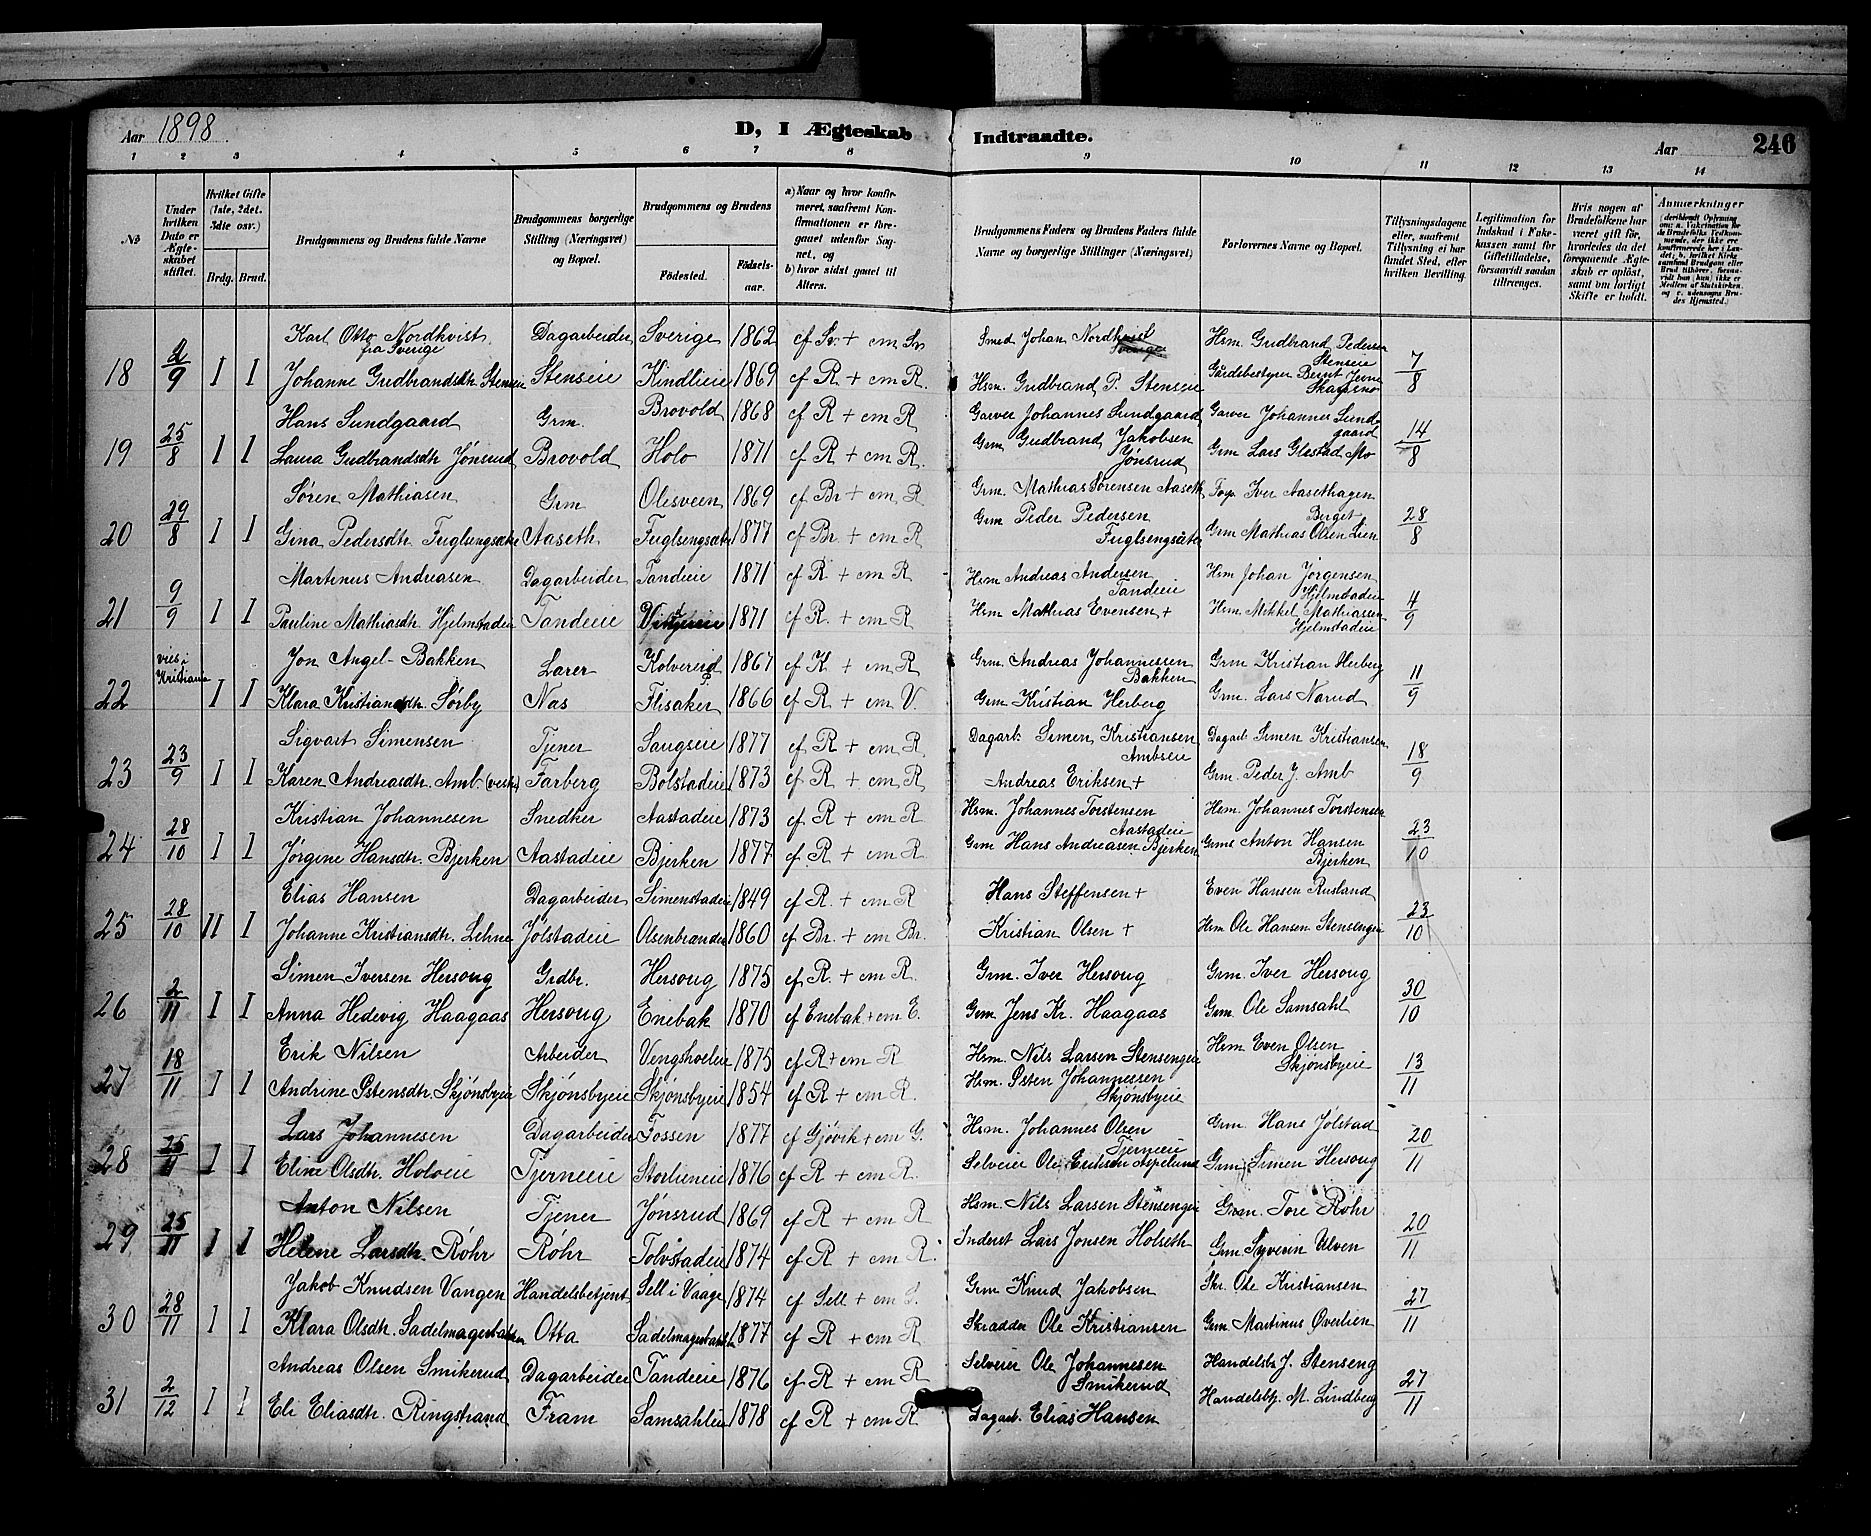 Aar 1898. D, I Ægteskab Indtraadte. Aar 246
1 2 3 4 5 6 7 8 9 10 11 12 13 14
No
Under hvilken Dato er Ægteskabet stiftet.
Hvilket Gifte (1ste, 2det. 3die osv.)
Brdg. Brud.
Brudgommens og Brudens fulde Navne
Brudgommens borgerlige Stilling (Næringsvei) og Bopæl.
Brudgommens og Brudens
Fødested. Fødselsaar.
a) Naar og hvor konfirmeret, saafremt Konfirmationen er foregaaet udenfor Sognet, og
b) hvor sidst gaaet til Alters.
Brudgommens Faders og Brudens Faders fulde Navne og borgerlige Stillinger (Næringsvei)
Forlovernes Navne og Bopæl.
Tillysningsdagene eller, saafremt Tillysning ei har fundet Sted, efter hvilken Bevilling.
Legitimation for Indskud i Enkekassen samt for Giftetilladelse, forsaavidt saadan tiltrænges.
Hvis nogen af Brudefolkene har været gift før, hvorledes da det foregaaende Ægteskab er opløst, samt om lovligt Skifte er holdt.
Anmærkninger
Karl Otto Nordkvist fra Sverige Dagarbeider Sverige 1862 cf Sv. + cm Sv Smed Johan Nordkvist Sverige Hsm. Gudbrand Pedersen Stenseie
18 2/9 I I Johanne Gudbrandsdtr. Stenseie Stenseie Kindlieie 1869 cf R + cm R. Hsm. Gudbrand P. Stenseie Gårdsbestyrer Bernt Jevne Skappsno 7/8
Hans Sundgaard Grm. Brovold 1868 cf R + cm R Garver Johannes Sundgaard Garver Johannes Sundgaard
19 25/8 I I Laura Gudbrandsdtr Jónsrud Brovold Holo 1871 cf R + cm R. Grm Gudbrand Jakobsen Jónsrud Grm Lars Glestad Mo 14/8
Søren Mathiasen Grm Olesveen 1869 cf Br + cm R Grm. Mathias Sørensen Aaseth Iver Aasethagen Berget
20 29/8 I I Gina Pedersdtr. Fuglsengsæter Aaseth. Fuglsengsæter 1877 cf Br. + cm R Grm Peder Pedersen Fuglsengsæter Grm Mathias Olsen Lien 28/8
Martinus Andreasen Dagarbeider Tandeeie 1871 cf R + cm R Hsm Andreas Andersen Tandeie Hsm Johan Jørgensen Hjelmstadeie
21 9/9 I I Pauline Mathiasdtr. Hjelmstadeie Tandeeie 1871 cf R. + cm R Hsm Mathias Evensen + Hsm. Mikkel Mathiassen Hjelmstadeie 4/9
viet i Kristiania Jon Angel-Bakken Lærer Kolvereid 1867 cf K + cm R Grm. Andreas Johannessen Bakken Grm Kristian Herberg
22 I I Klara Kristiansdtr. Sørby Næs Flisaker 1866 cf R + cm V. Grm Kristian Herberg Grm. Lars Narud 11/9
Sigvart Simensen Tjener Saugseie 1877 cf R + cm R Dagarb. Simen Kristiansen Ambseie Dagarb Simen Kristiansen
23 23/9 I I Karen Andreasdtr. Amb. (vestre) Farberg Bolstadeie 1873 cf R + cm R Andreas Eriksen + Grm. Peder J. Amb 18/9
Kristian Johannesen Snedker Aastadeie 1873 cf R + cm R Hsm. Johannes Torstensen Aastadeie Hsm. Johannes Torstensen
24 28/10 I I Jørgine Hansdtr. Bjerken Aastadeie Bjerken 1877 cf R + cm R Grm Hans Andreasen Bjerken Grms Anton Hansen Bjerken 23/10
Elias Hansen Dagarbeider Simenstadeie 1849 cf R. + cm R Hans Steffensen + Even Hansen Rusland
25 28/10 II I Johanne Kristiansdtr. Lehne Jølstadeie Olsenbranden 1860 cf Br. + cm Br. Kristian Olsen + Hsm Ole Hansen Stensengeie 23/10
Simen Iversen Hersoug Grdbr. Hersoug 1875 cf R. + cm R. Grm. Iver Hersoug Grm. Iver Hersoug
26 2/11 I I Anna Hedevig Haagaas Hersoug Enebak 1870 cf Enebak + cm E. Grm Jens Kr. Haagaas Grm. Ole Samsahl 30/10
Erik Nilsen Arbeider Vengshoeleie 1875 cf R + cm R Hsm. Nils Larsen Stensengeie Hsm Even Olsen Skjønsbyeie
27 18/11 I I Andrine Østensdtr. Skjønsbyeie Skjønsbyeie Skjønsbyeie 1854 cf R + cm R. Hsm. Østen Johannessen Skjønsbyeie 13/11
Lars Johannesen Dagarbeider Fossen 1877 cf Gjøvik + cm G. Hsm. Johannes Olsen Tjerneie Grm. Hans Jølstad
28 25/11 I I Eline Olsdtr. Holoeie Tjerneeie Storlieneie 1876 cf R + cm R. Selveier Ole Eriksen Aspelund Grm. Simen Hersoug 20/11
Anton Nilsen Tjener Jónsrud 1869 cf R + cm R Hsm. Nils Larsen Stensengeie Grm. Tore Røhr
29 25/11 I I Helene Larsdtr. Røhr Røhr Tolvstadeie 1874 cf R + cm R. Inderst Lars Jonsen Holseth Grm Syverin Ulven 20/11
Jakob Knudsen Vangen Handelsbetjent Sell i Vaage 1874 cf Sell + cm S. Grm Knud Jakobsen Skr. Ole Kristiansen
30 28/11 I I Klara Olsdtr. Sadelmagerbakken Otta Sadelmagerbakken 1877 cf R + cm R Skrædder Ole Kristiansen Grm. Martinus Øverlien 27/11
Andreas Olsen Smikerud Dagarbeider Tandeie 1876 cf R + cm R Selveier Ole Johannesen Smikerud Handelsb. J. Stenseng
31 2/12 I I Eli Eliasdtr. Ringstrand Fram Samsahleie 1878 cf R + cm R. Dagarb. Elias Hansen Handelsbtj. M. Lindberg 27/11